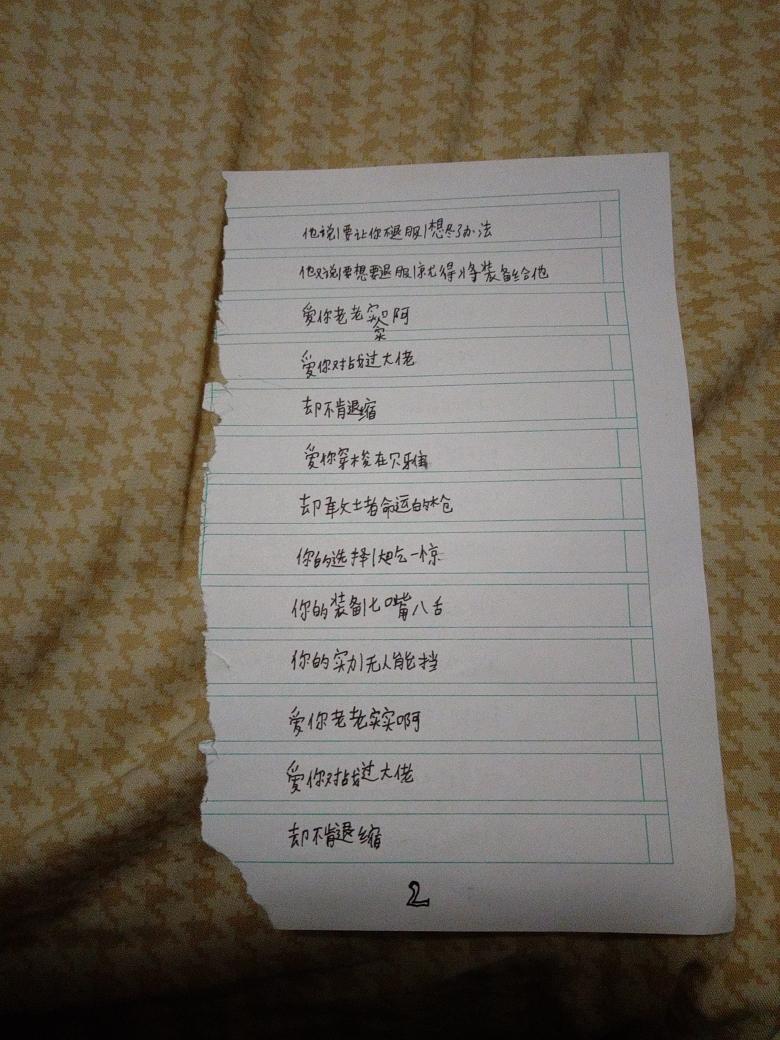 他说要让你退服想尽办法
他又说要想要退服就得将装备给他
爱你老老实实啊
爱你对战过大佬
却不肯退缩
爱你穿梭在贝雅
却敢士者命运的枪
你的选择大吃一惊
你的装备七嘴八舌
你的实力无人能挡
爱你老老实实啊
爱你对战过大佬
却不肯退缩
2